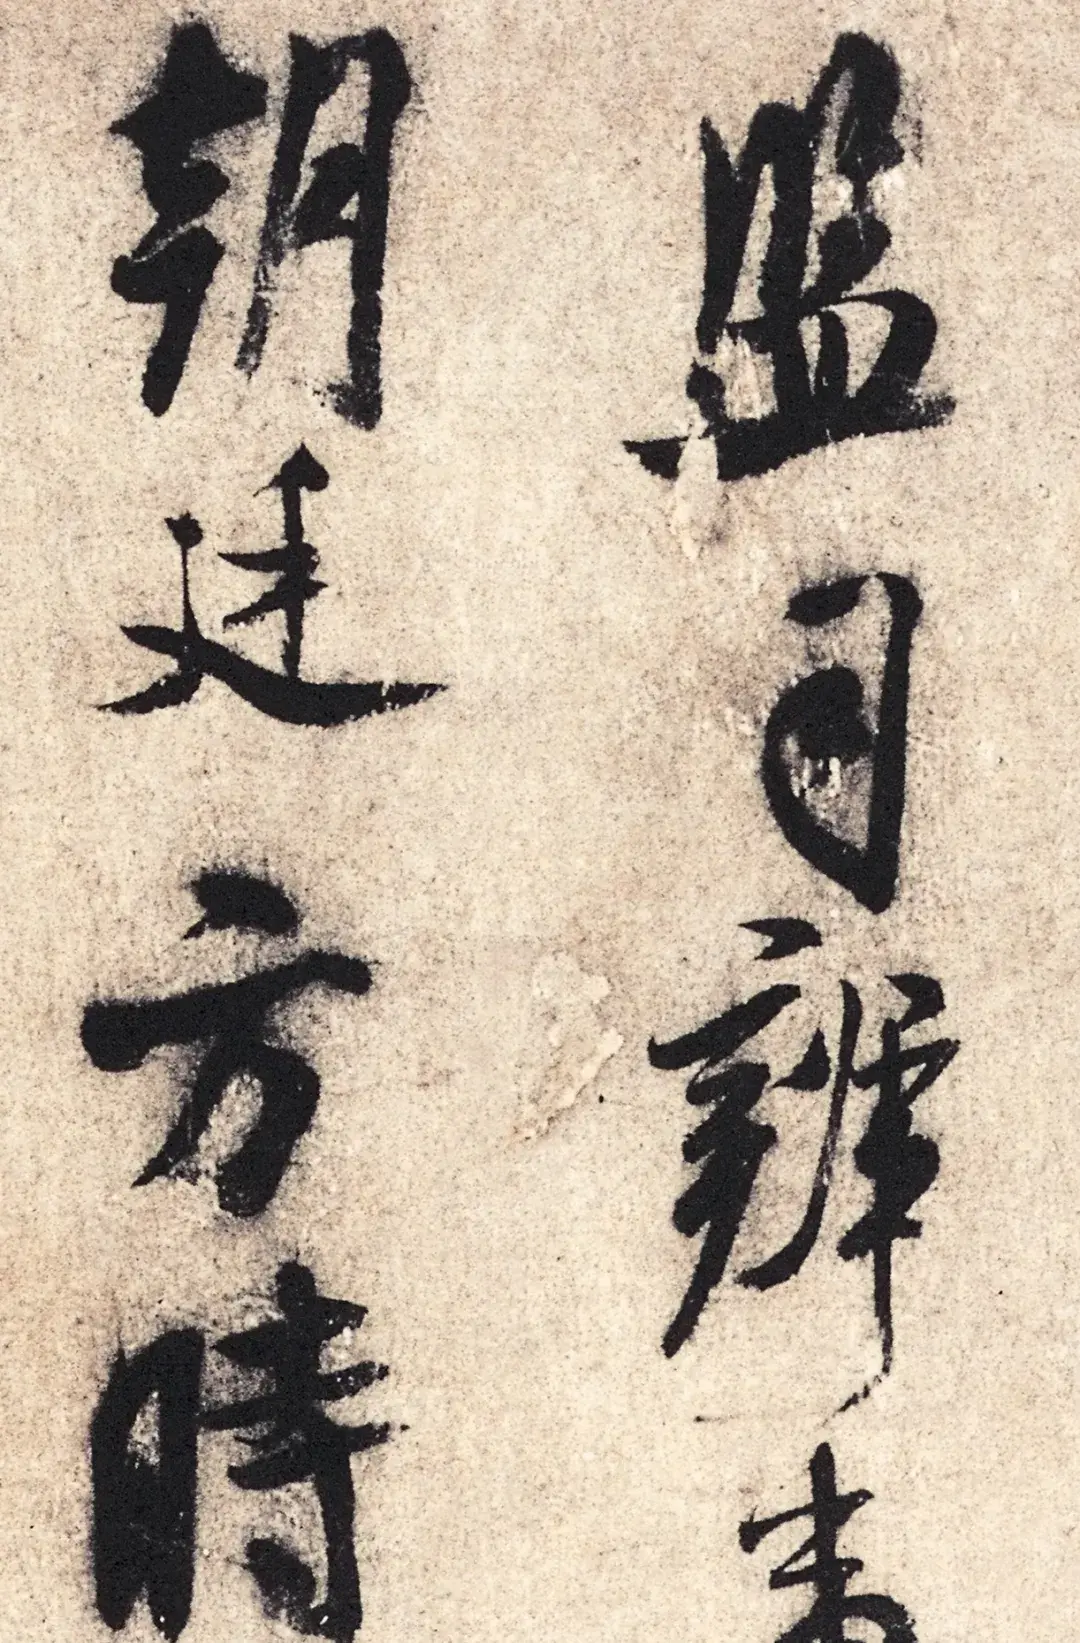 監司辨
朝廷方時